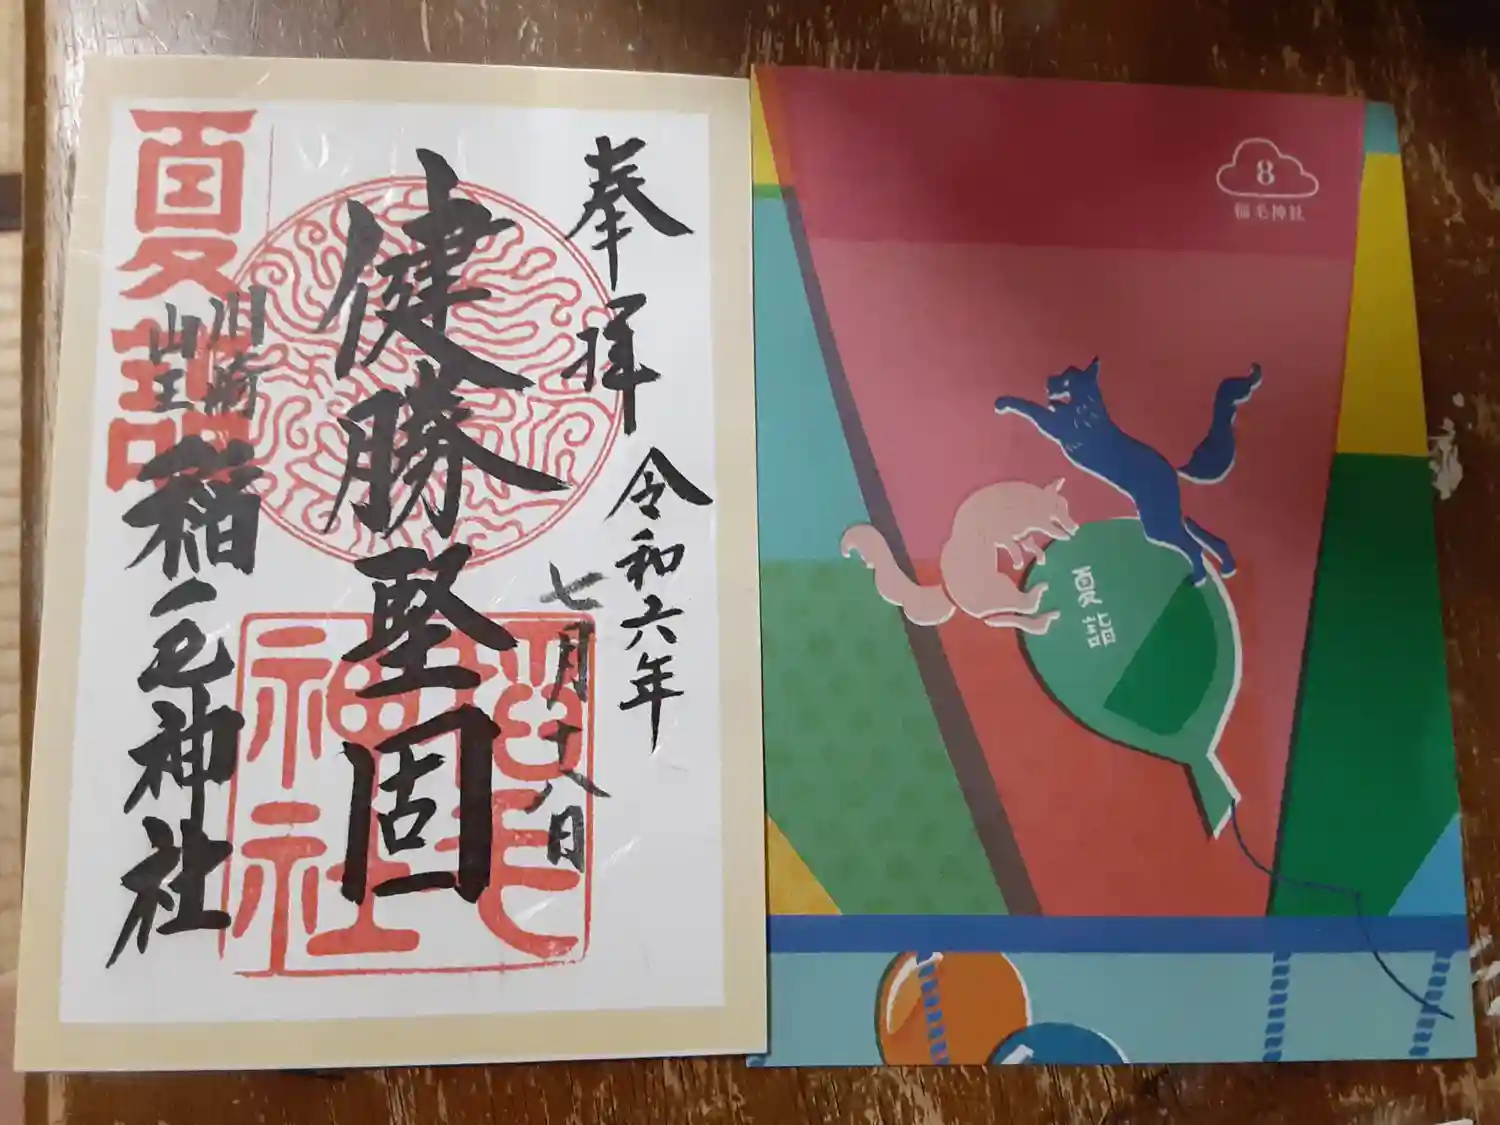 奉拝
令和六年
七月十八日
健勝堅固
夏詣
川崎
山王
稲毛神社
稲毛
神社
8
稲毛神社
夏詣